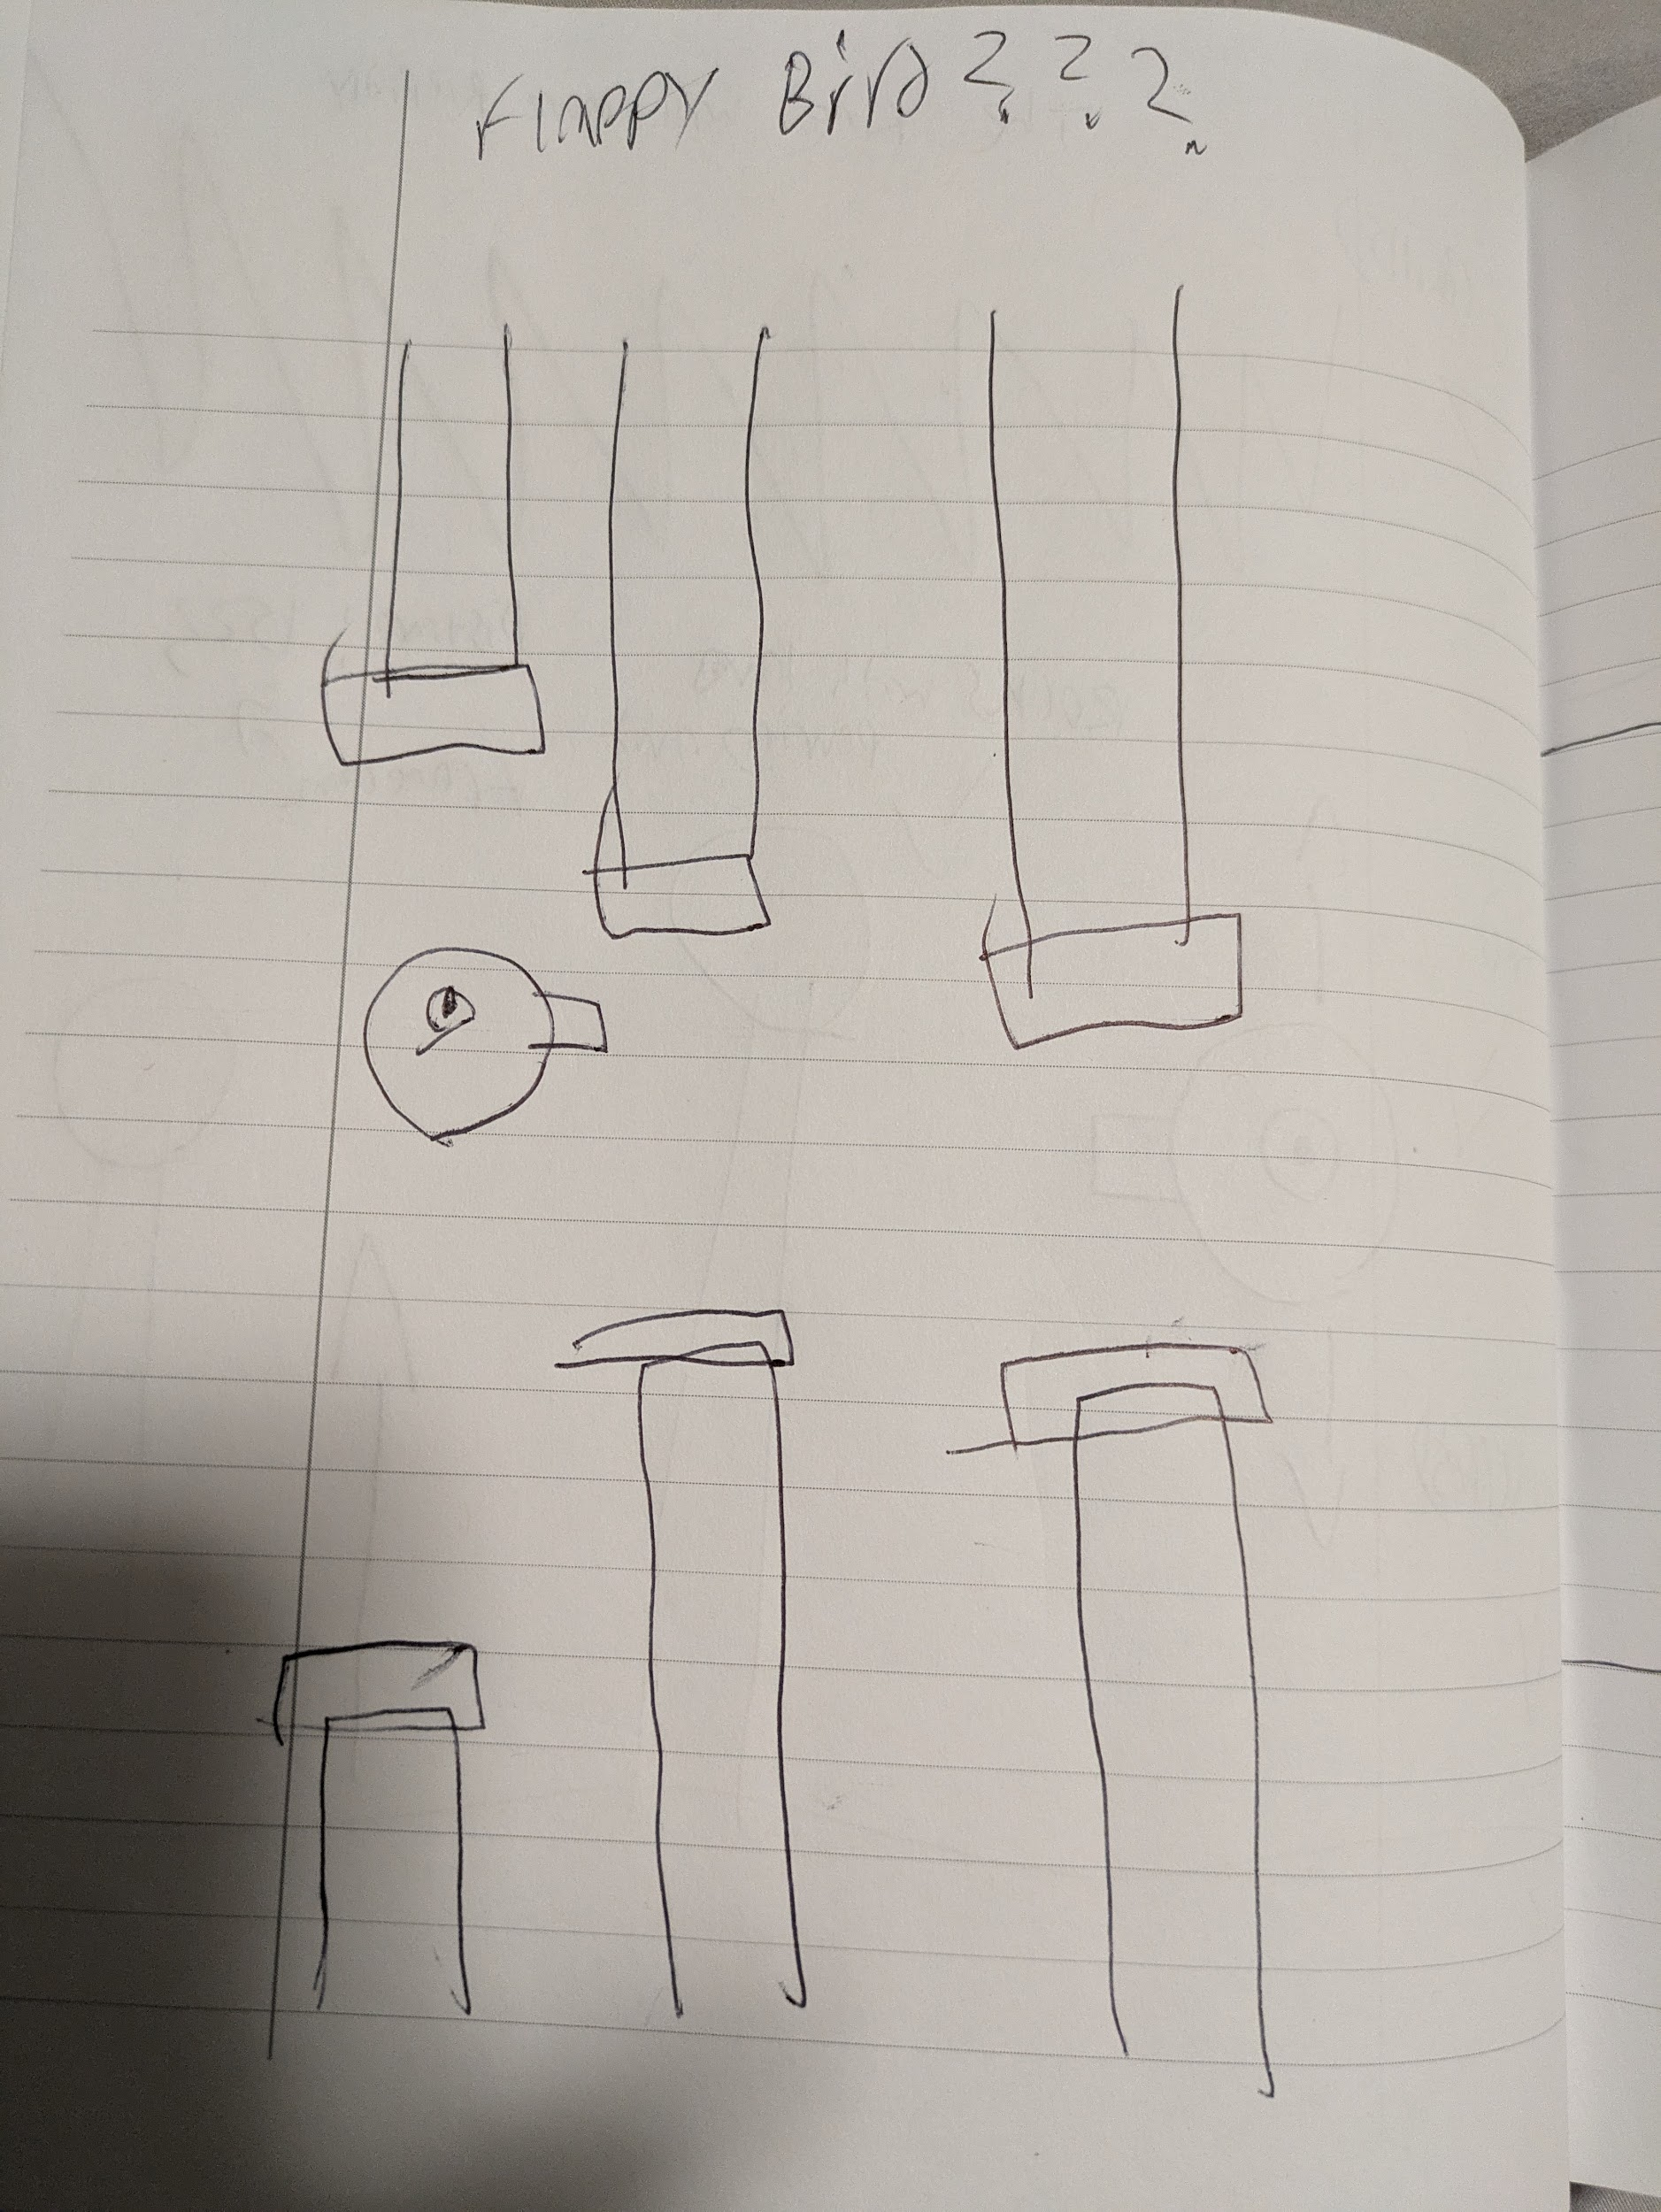 Flappy Bird???